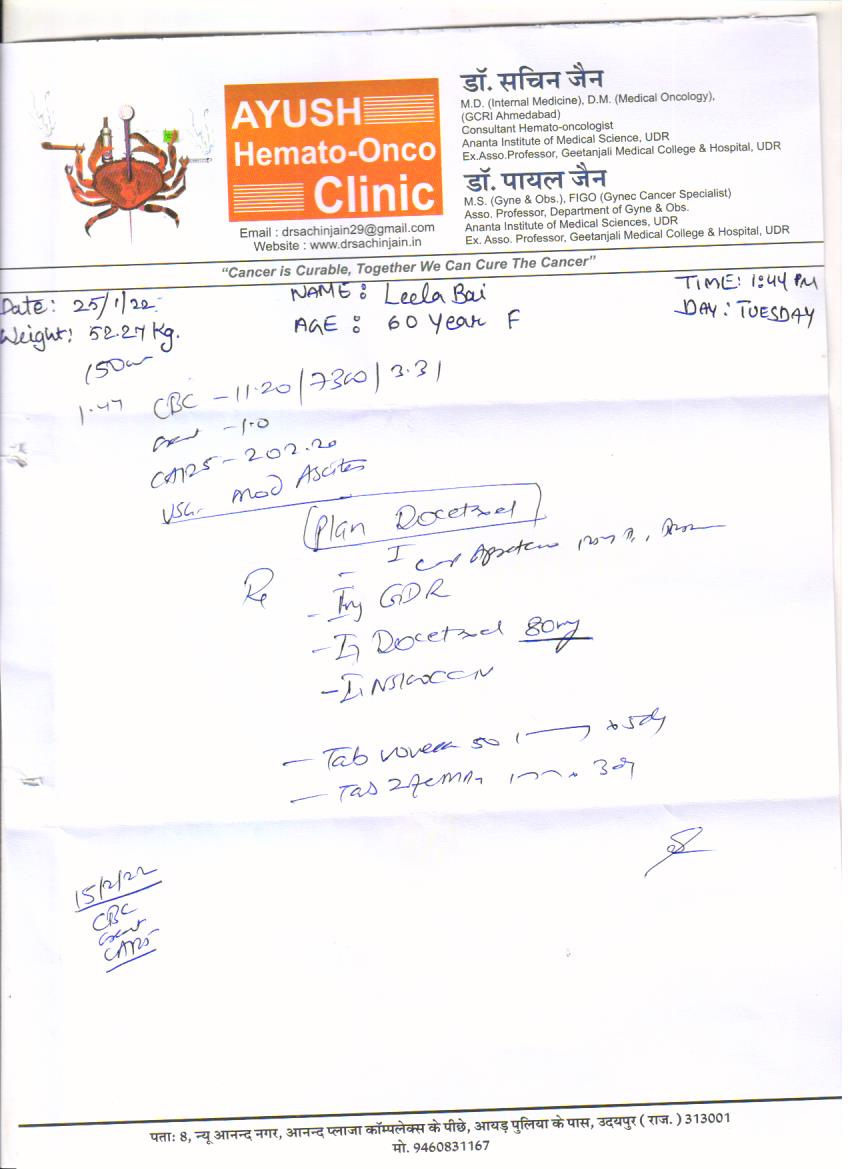 AYUSH
Hemato-Onco
Clinic
Email : drsachinjain29@gmail.com
Website : www.drsachinjain.in
डॉ. सचिन जैन
M.D. (Internal Medicine), D.M. (Medical Oncology),
(GCRI Ahmedabad)
Consultant Hemato-oncologist
Ananta Institute of Medical Science, UDR
Ex.Asso.Professor, Geetanjali Medical College & Hospital, UDR
डॉ. पायल जैन
M.S. (Gyne & Obs.), FIGO (Gynec Cancer Specialist)
Asso. Professor, Department of Gyne & Obs.
Ananta Institute of Medical Sciences, UDR
Ex. Asso. Professor, Geetanjali Medical College & Hospital, UDR
“Cancer is Curable, Together We Can Cure The Cancer”
Date: 25/1/22 NAME: Leela Bai TIME: 1:44 PM
Weight: 52.27 Kg. AGE: 60 Year F DAY: TUESDAY
150cm
1.47 CBC - 11.20/7300/3.31
- 1.0
CA125 - 202.20
USG. Mod Ascites
Plan Docetaxel
Rx
- Inj GDR
- Inj Docetaxel 80mg
- Tab 50 x 5d
- Tab x 3d
15/2/22
CBC
CA125
पताः 8, न्यू आनन्द नगर, आनन्द प्लाजा कॉम्पलेक्स के पीछे, आयड़ पुलिया के पास, उदयपुर ( राज. ) 313001
मो. 9460831167